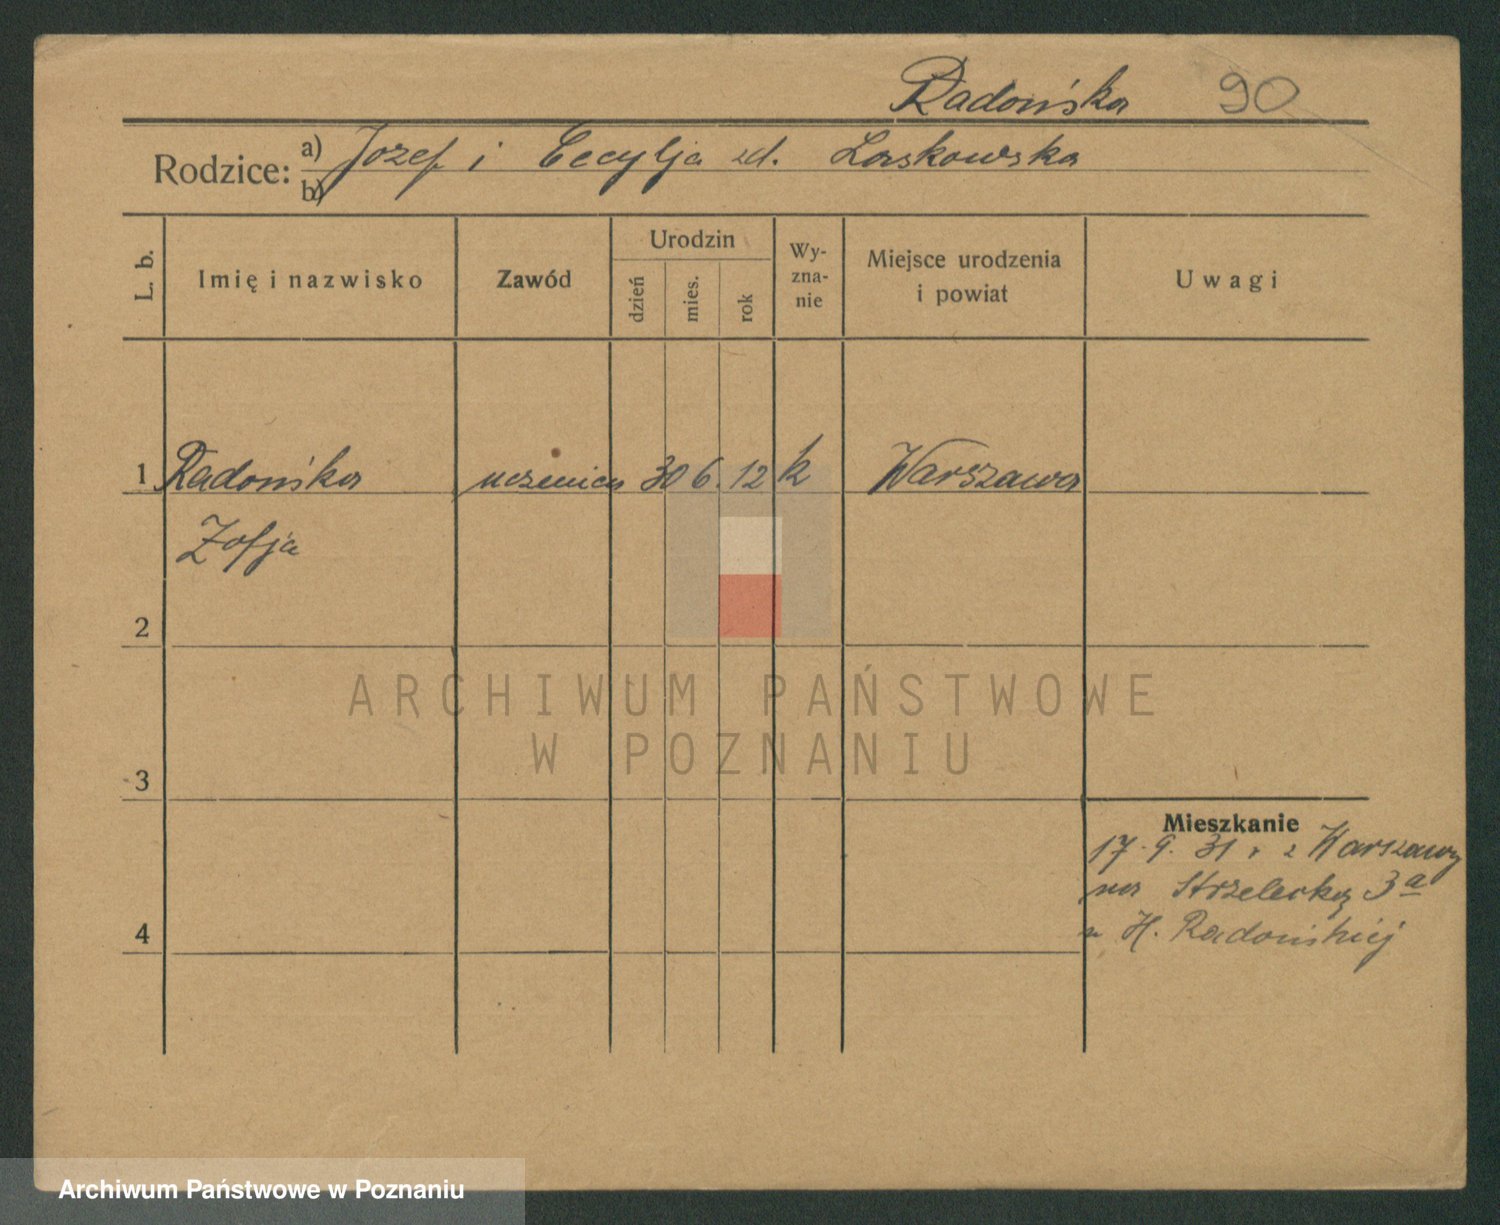 Radońska 90
Rodzice: a) Jozef i Cecylja zd. Laskowska
b)
L. b.
Imię i nazwisko
Zawód
Urodzin
dzień
mies.
rok
Wy-
zna-
nie
Miejsce urodzenia
i powiat
Uwagi
1 Radońska uczenica 30 6. 12 k Warszawa
Zofja
2
3
4
Mieszkanie
17. 9. 31 r z Warszawy
na Strzelecką 3a
u H. Radońskiej
ARCHIWUM PAŃSTWOWE
W POZNANIU
Archiwum Państwowe w Poznaniu